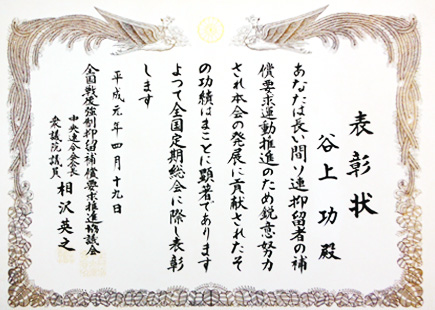 表彰状
谷上功殿
あなたは長い間ソ連抑留者の補
償要求運動推進のため鋭意努力
され本会の発展に貢献されたそ
の功績はまことに顕著であります
よつて全国定期総会に際し表彰
します
平成元年四月十九日
全国戦後強制抑留補償要求推進協議会
中央連合会会長
衆議院議員 相沢英之